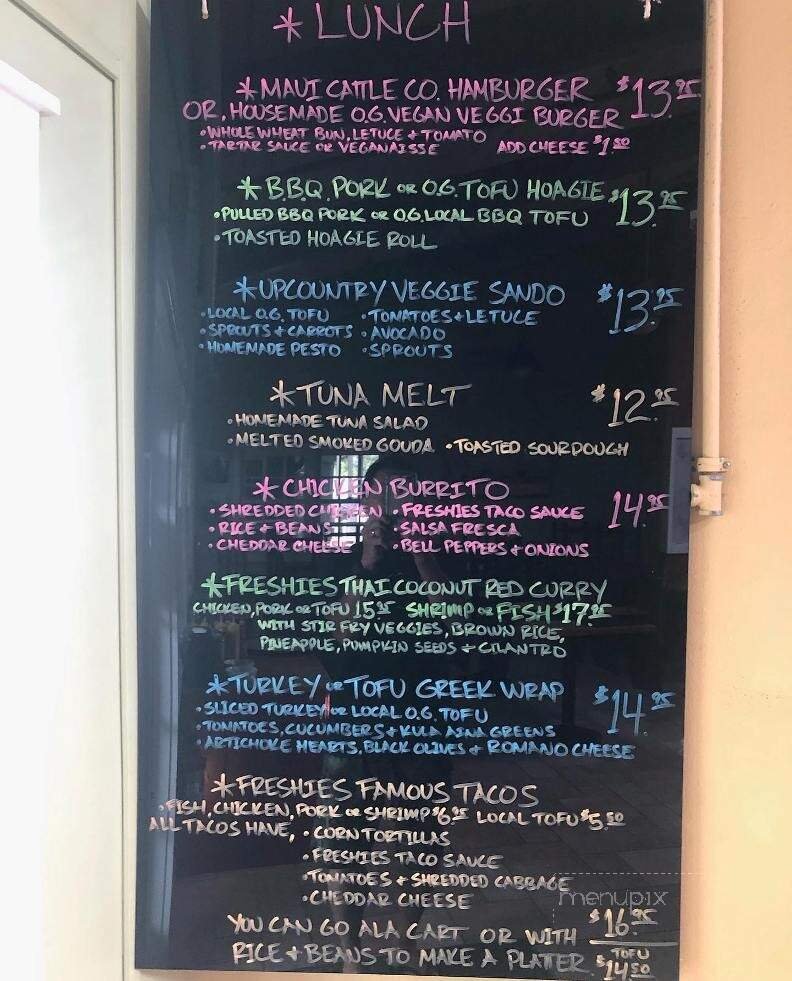 *LUNCH
*MAUI CATTLE CO. HAMBURGER $13.95
OR, HOUSEMADE O.G. VEGAN VEGGI BURGER
•WHOLE WHEAT BUN, LETUCE + TOMATO
•TARTAR SAUCE OR VEGANAISSE ADD CHEESE $1.50
*B.B.Q. PORK OR O.G. TOFU HOAGIE $13.95
•PULLED BBQ PORK OR O.G. LOCAL BBQ TOFU
•TOASTED HOAGIE ROLL
*UPCOUNTRY VEGGIE SANDO $13.95
•LOCAL O.G. TOFU •TOMATOES+LETUCE
•SPROUTS + CARROTS •AVOCADO
•HOMEMADE PESTO •SPROUTS
*TUNA MELT $12.95
•HOMEMADE TUNA SALAD
•MELTED SMOKED GOUDA •TOASTED SOURDOUGH
*CHICKEN BURRITO 14.95
•SHREDDED CHICKEN •FRESHIES TACO SAUCE
•RICE + BEANS •SALSA FRESCA
•CHEDDAR CHEESE •BELL PEPPERS + ONIONS
*FRESHIES THAI COCONUT RED CURRY
CHICKEN, PORK OR TOFU 15.95 SHRIMP OR FISH $17.95
WITH STIR FRY VEGGIES, BROWN RICE,
PINEAPPLE, PUMPKIN SEEDS + CILANTRO
*TURKEY OR TOFU GREEK WRAP $14.95
•SLICED TURKEY OR LOCAL O.G. TOFU
•TOMATOES, CUCUMBERS + KULA AINA GREENS
•ARTICHOKE HEARTS, BLACK OLIVES + ROMANO CHEESE
*FRESHIES FAMOUS TACOS
•FISH, CHICKEN, PORK OR SHRIMP $6.95 LOCAL TOFU $5.50
ALL TACOS HAVE, •CORN TORTILLAS
•FRESHIES TACO SAUCE
•TOMATOES + SHREDDED CABBAGE
•CHEDDAR CHEESE
menupix
YOU CAN GO ALA CART OR WITH $16.95
RICE + BEANS TO MAKE A PLATTER TOFU $14.50